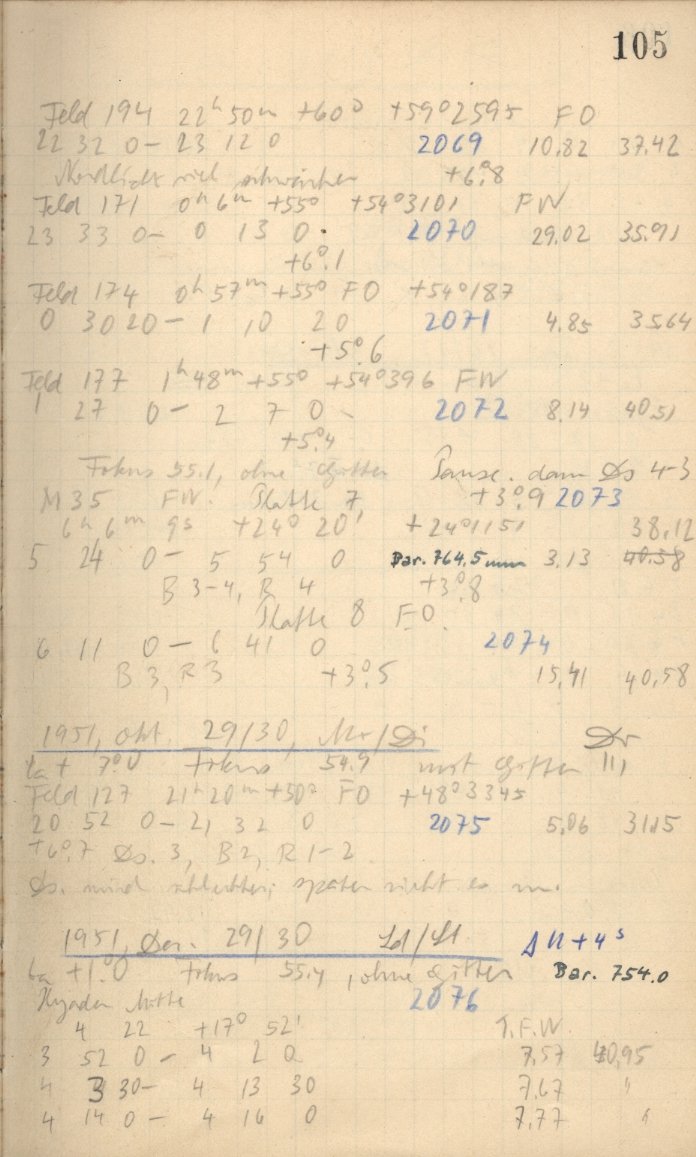 105
Feld 194 22h 50m +60° +59°2595 FO
22 32 0 – 23 12 0 2069 10.82 37.42
Nordlicht viel schwächer +6°.8
Feld 171 0h 6m +55° +54°3101 FW
23 33 0 – 0 13 0 2070 29.02 35.91
+6°.1
Feld 174 0h 57m +55° FO +54°187
0 30 20 – 1 10 20 2071 4.85 35.64
+5°.6
Feld 177 1h 48m +55° +54°396 FW
1 27 0 – 2 7 0 2072 8.14 40.51
+5°.4
Fokus 55.1, ohne Gitter Pause. dann Ds 4-3
M 35 FW. Platte 7, +3°.9 2073
6h 6m 9s +24° 20' +24°1151 38.12
5 24 0 – 5 54 0 Bar. 764.5 mm 3.13 40.58
B 3-4, R 4 +3°.8
Platte 8 FO
6 11 0 – 6 41 0 2074
B 3, R 3 +3°.5 15.41 40.58
1951, Okt. 29/30, Mo/Di Dr
ta + 7°.0 Fokus 54.9 mit Gitter III
Feld 127 21h 20m +50° FO +48°3345
20 52 0 – 21 32 0 2075 5.06 31.15
+6°.7 Ds. 3, B 2, R 1-2
Ds. wird schlechter, später nicht
1951, Dez. 29/30 ΔU + 4s
ta +1°.0 Fokus 55.4, ohne Gitter Bar. 754.0
Hyaden Mitte 2076
4 22 +17° 52' T.F.W.
3 52 0 – 4 2 0 7.57 40.95
4 3 30 – 4 13 30 7.67 "
4 14 0 – 4 16 0 7.77 "